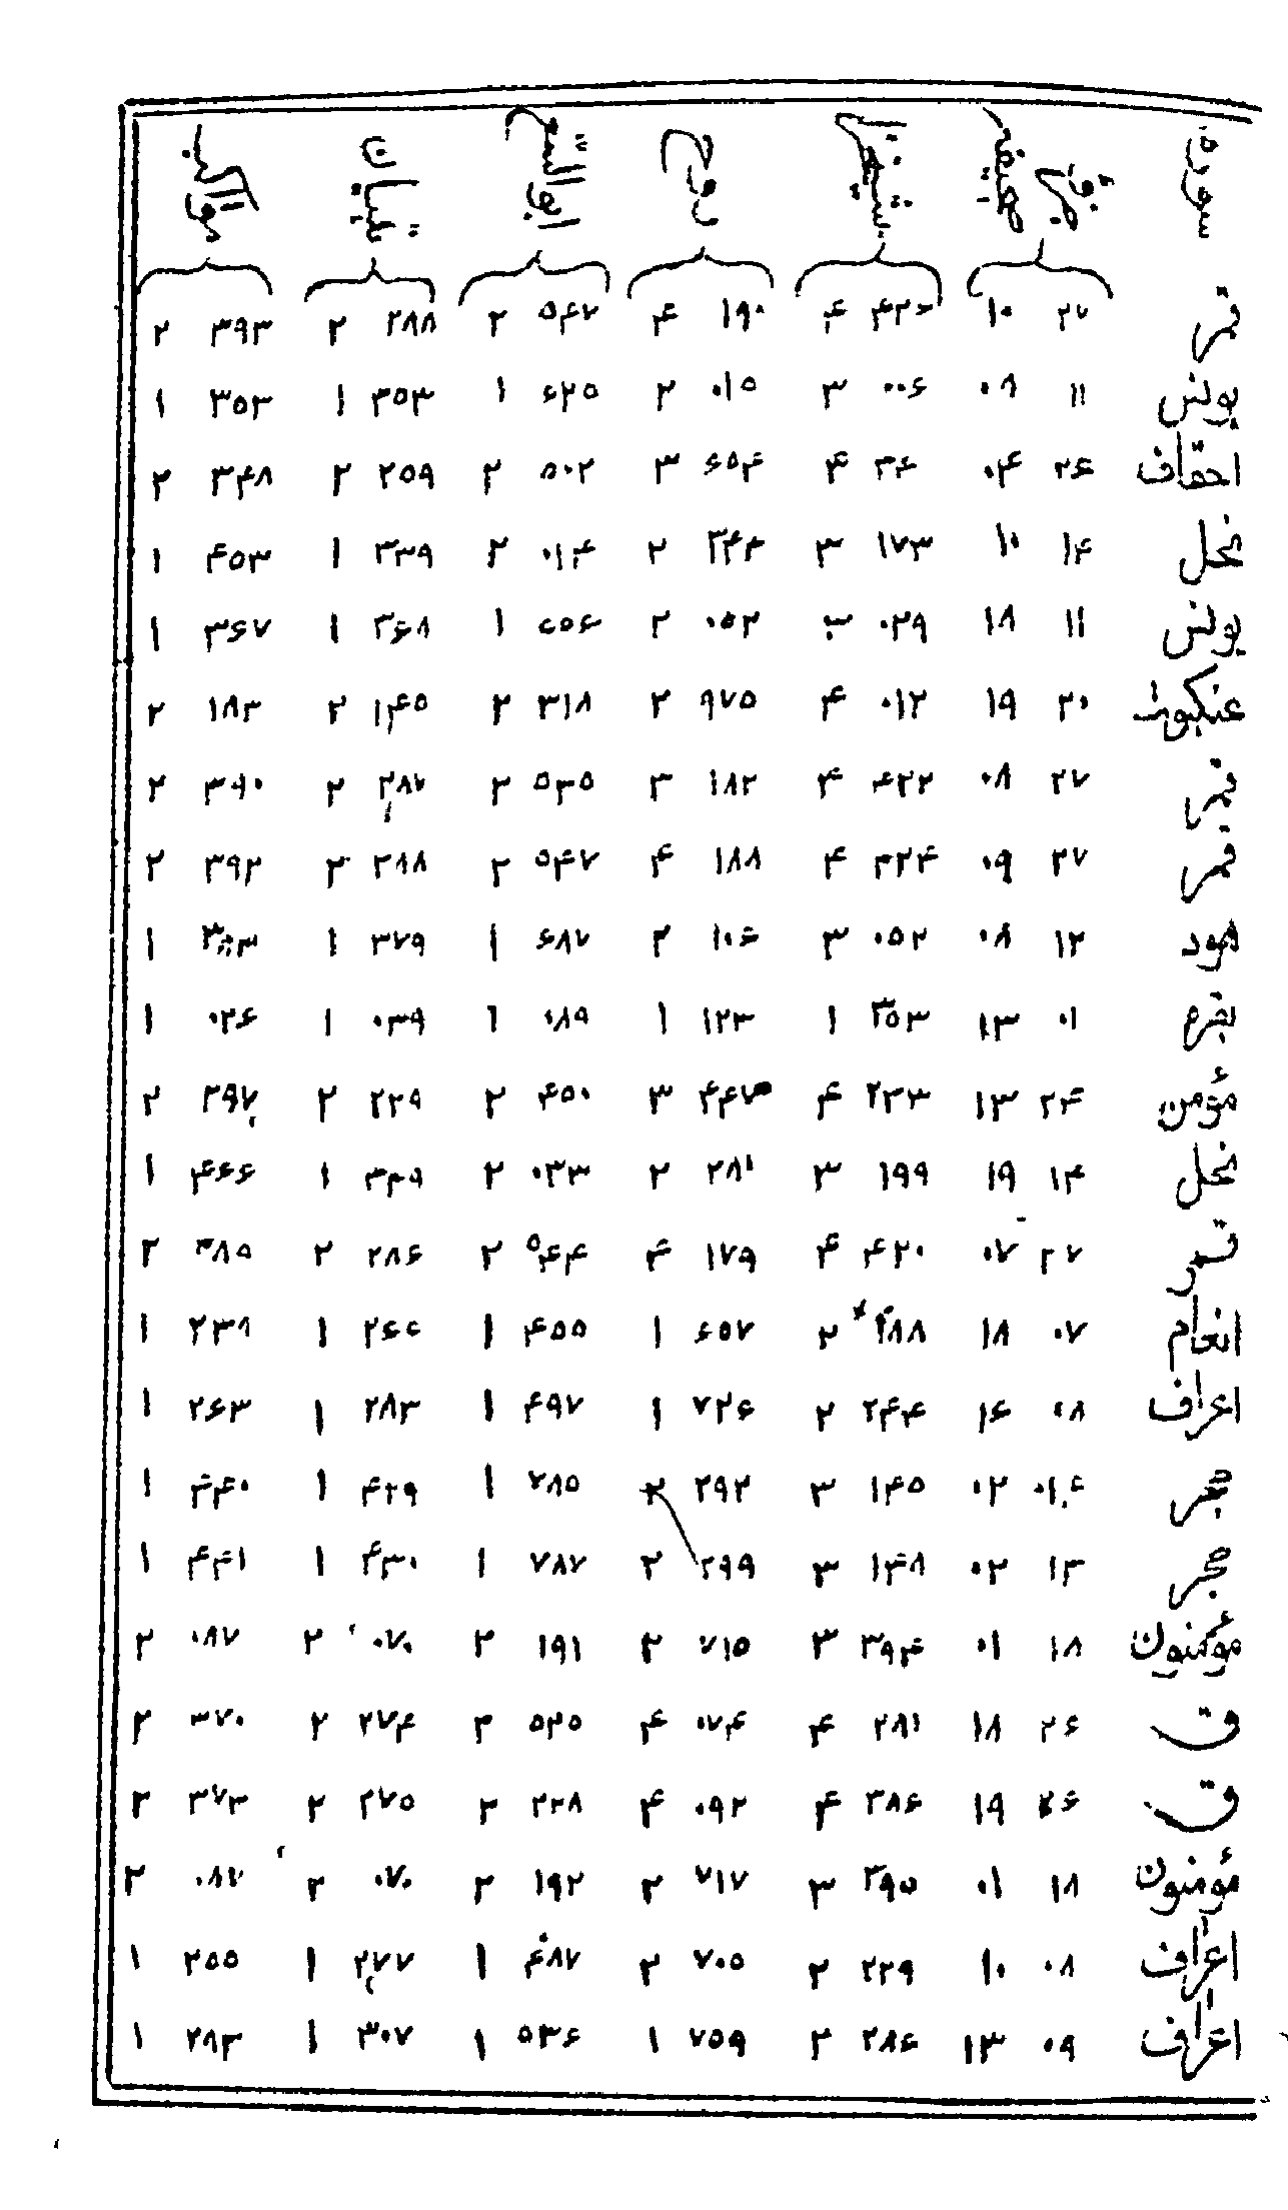 سوره جزؤ صحیفه شیخزاده روح ابو السّعود تبیان مواکب
قمر ۲۷ ۱۰ ۴۲۶ ۴ ۱۹۰ ۴ ۵۴۷ ۲ ۲۸۸ ۲ ۳۹۳ ۲
یونس ۱۱ ۰۸ ۰۰۶ ۳ ۰۱۵ ۲ ۶۲۵ ۱ ۳۵۳ ۱ ۳۵۳ ۱
احقاف ۲۶ ۰۴ ۳۴۶ ۴ ۶۵۴ ۳ ۵۰۲ ۲ ۲۵۹ ۲ ۳۴۸ ۲
نحل ۱۴ ۱۰ ۱۷۳ ۳ ۳۴۴ ۲ ۰۱۴ ۲ ۳۳۹ ۱ ۴۵۳ ۱
یونس ۱۱ ۱۸ ۰۲۹ ۳ ۰۵۲ ۲ ۶۵۶ ۱ ۳۶۸ ۱ ۳۶۷ ۱
عنکبوت ۲۰ ۱۹ ۰۱۲ ۴ ۹۷۵ ۲ ۳۱۸ ۲ ۱۴۵ ۲ ۱۸۳ ۲
قمر ۲۷ ۰۸ ۴۲۲ ۴ ۱۸۲ ۳ ۵۳۵ ۲ ۲۸۷ ۲ ۳۹۰ ۲
قمر ۲۷ ۰۹ ۴۲۴ ۴ ۱۸۸ ۴ ۵۴۷ ۲ ۲۸۸ ۲ ۳۹۲ ۲
هود ۱۲ ۰۸ ۰۵۲ ۳ ۱۰۶ ۲ ۶۸۷ ۱ ۳۷۹ ۱ ۳۸۳ ۱
بقره ۰۱ ۱۳ ۳۵۳ ۱ ۱۲۳ ۱ ۰۸۹ ۱ ۰۳۹ ۱ ۰۲۶ ۱
مؤمن ۲۴ ۱۳ ۲۳۳ ۴ ۴۴۷ ۳ ۴۵۰ ۲ ۲۲۹ ۲ ۲۹۷ ۲
نحل ۱۴ ۱۹ ۱۹۹ ۳ ۲۸۱ ۲ ۰۳۳ ۲ ۳۴۹ ۱ ۴۶۶ ۱
قمر ۲۷ ۰۷ ۴۲۰ ۴ ۱۷۹ ۴ ۵۴۴ ۲ ۲۸۶ ۲ ۳۸۵ ۲
انعام ۰۷ ۱۸ ۱۸۸ ۲ ۶۵۷ ۱ ۴۵۵ ۱ ۲۶۶ ۱ ۲۳۸ ۱
اعراف ۰۸ ۱۶ ۲۴۴ ۲ ۷۲۶ ۱ ۴۹۷ ۱ ۲۸۳ ۱ ۲۶۳ ۱
حجر ۰۲ ۱۴۵ ۳ ۲۹۲ ۲ ۷۸۵ ۱ ۴۲۹ ۱ ۴۴۰ ۱
حجر ۱۳ ۰۲ ۱۴۸ ۳ ۲۹۹ ۲ ۷۸۷ ۱ ۴۳۰ ۱ ۴۴۱ ۱
مؤمنون ۱۸ ۰۱ ۳۹۴ ۳ ۷۱۵ ۲ ۱۹۱ ۲ ۰۷۰ ۲ ۰۸۷ ۲
ق ۲۶ ۱۸ ۲۸۱ ۴ ۰۷۴ ۴ ۵۲۵ ۲ ۲۷۴ ۲ ۳۷۰ ۲
ق ۲۶ ۱۹ ۳۸۶ ۴ ۰۹۲ ۴ ۲۲۸ ۲ ۲۷۵ ۲ ۳۷۳ ۲
مؤمنون ۱۸ ۰۱ ۳۹۵ ۳ ۷۱۷ ۲ ۱۹۲ ۲ ۰۷۰ ۲ ۰۸۷ ۲
اعراف ۰۸ ۱۰ ۲۲۹ ۲ ۷۰۵ ۲ ۴۸۷ ۱ ۲۷۷ ۱ ۲۵۵ ۱
اعراف ۰۹ ۱۳ ۲۸۶ ۲ ۷۵۹ ۱ ۵۳۶ ۱ ۳۰۷ ۱ ۲۸۳ ۱